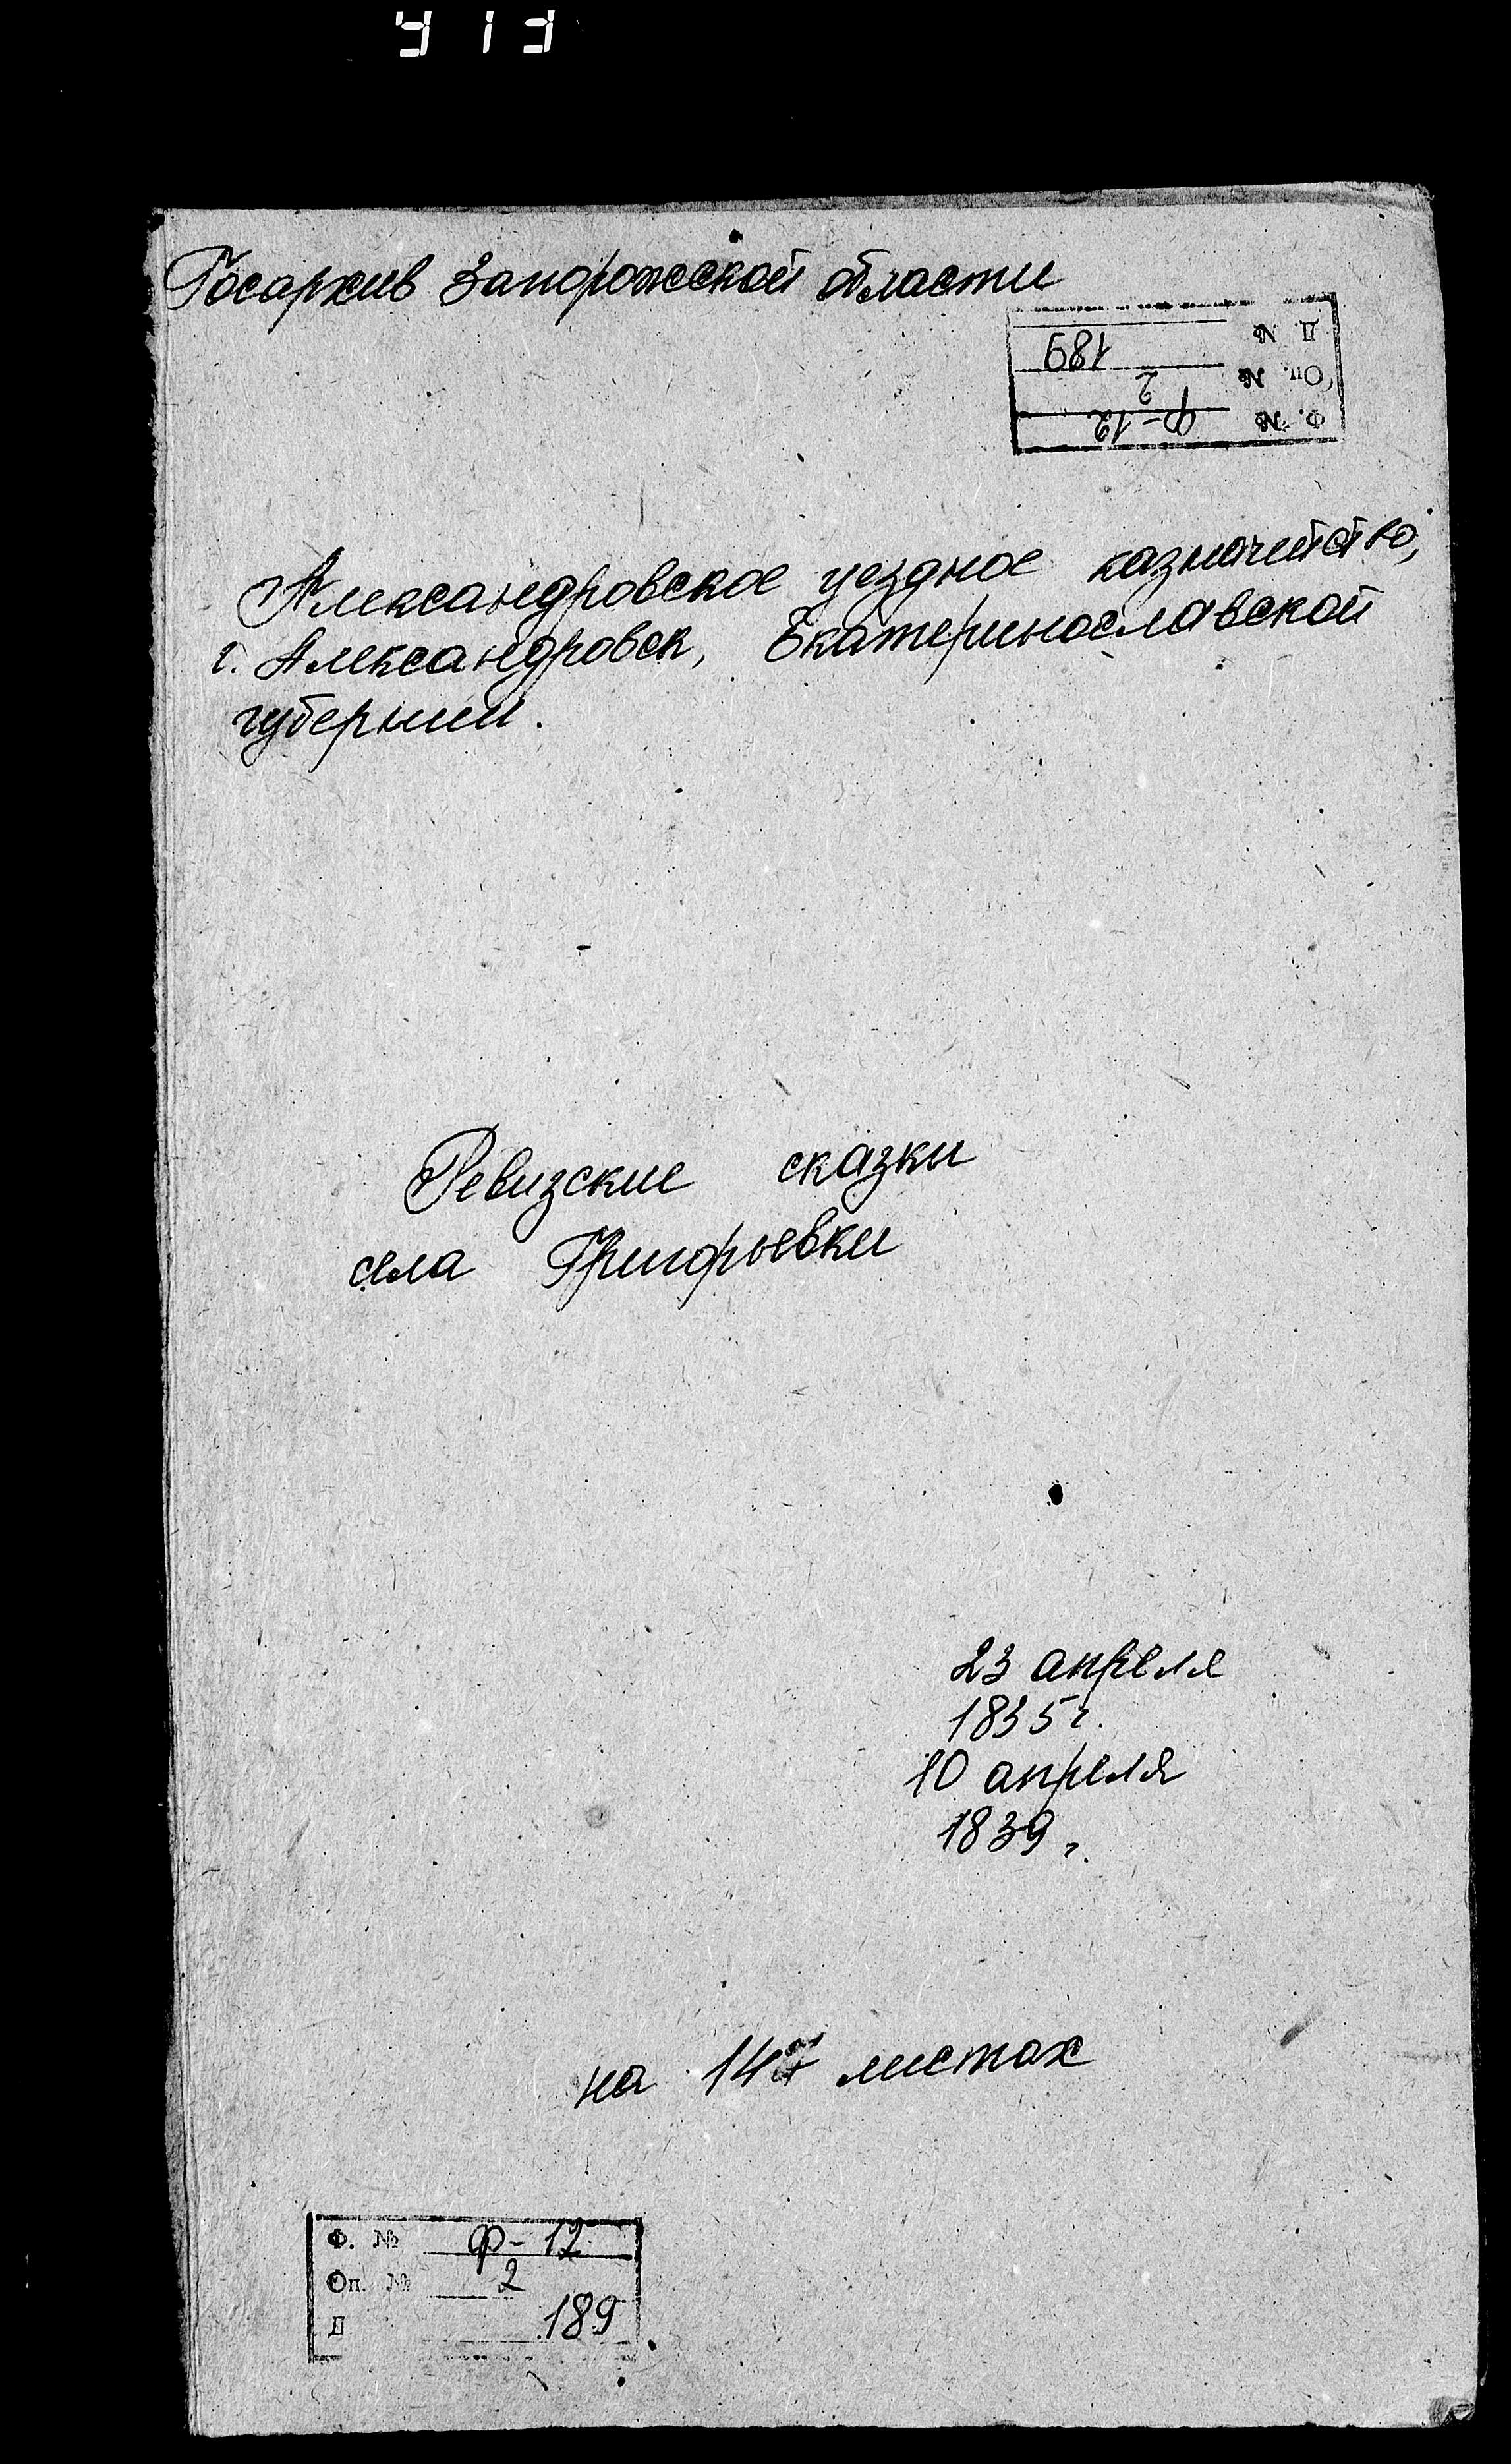 Госархив Запорожской области
Д. № 189
Оп. № 2
Ф. № Ф-12
Александровское уездное казначейство,
г. Александровск, Екатеринославской
губернии.
Ревизские сказки
села Григорьевки
23 апреля
1835 г.
10 апреля
1839 г.
на 147 листах
Ф. № Ф-12
Оп. № 2
Д 189